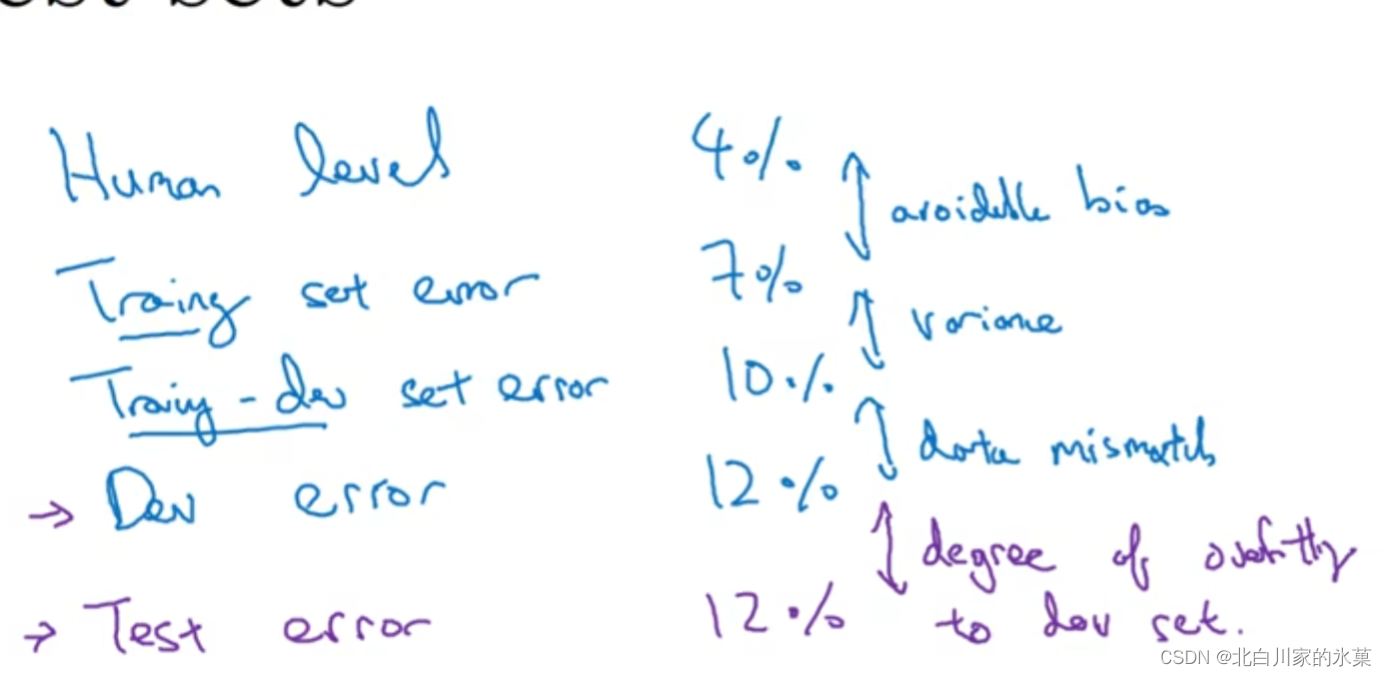 Human level 4%
avoidable bias
Training set error 7%
variance
Training-dev set error 10%
data mismatch
→ Dev error 12%
degree of overfitting
→ Test error 12% to dev set.
CSDN @北白川家的氷菓